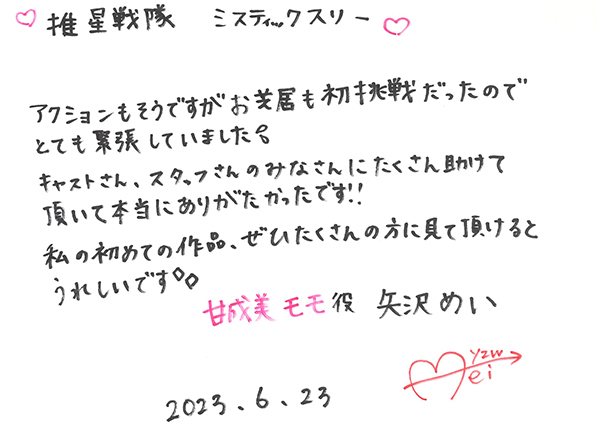 ♡推星戦隊 ミスティックスリー♡
アクションもそうですがお芝居も初挑戦だったので
とても緊張していました。
キャストさん、スタッフさんのみなさんにたくさん助けて
頂いて本当にありがたかったです!!
私の初めての作品、ぜひたくさんの方に見て頂けると
うれしいです。
甘成美モモ役 矢沢めい
yzw
Mei
2023.6.23